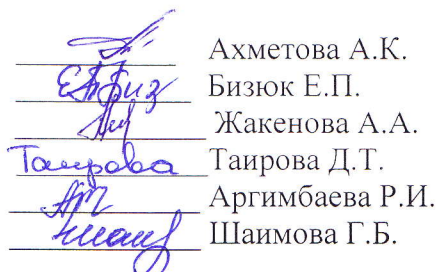 Ахметова А.К.
Бизюк Е.П.
Жакенова А.А.
Таирова Таирова Д.Т.
Аргимбаева Р.И.
Шаимова Г.Б.